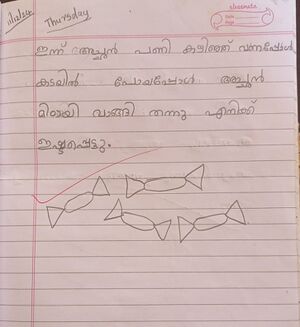 classmate
Date
Page
Thursday
ഇന്ന് അച്ഛൻ പണി കഴിഞ്ഞ് വന്നപ്പോൾ
കടയിൽ പോയപ്പോൾ അച്ഛൻ
മിഠായി വാങ്ങി തന്നു എനിക്ക്
ഇഷ്ടപ്പെട്ടു.